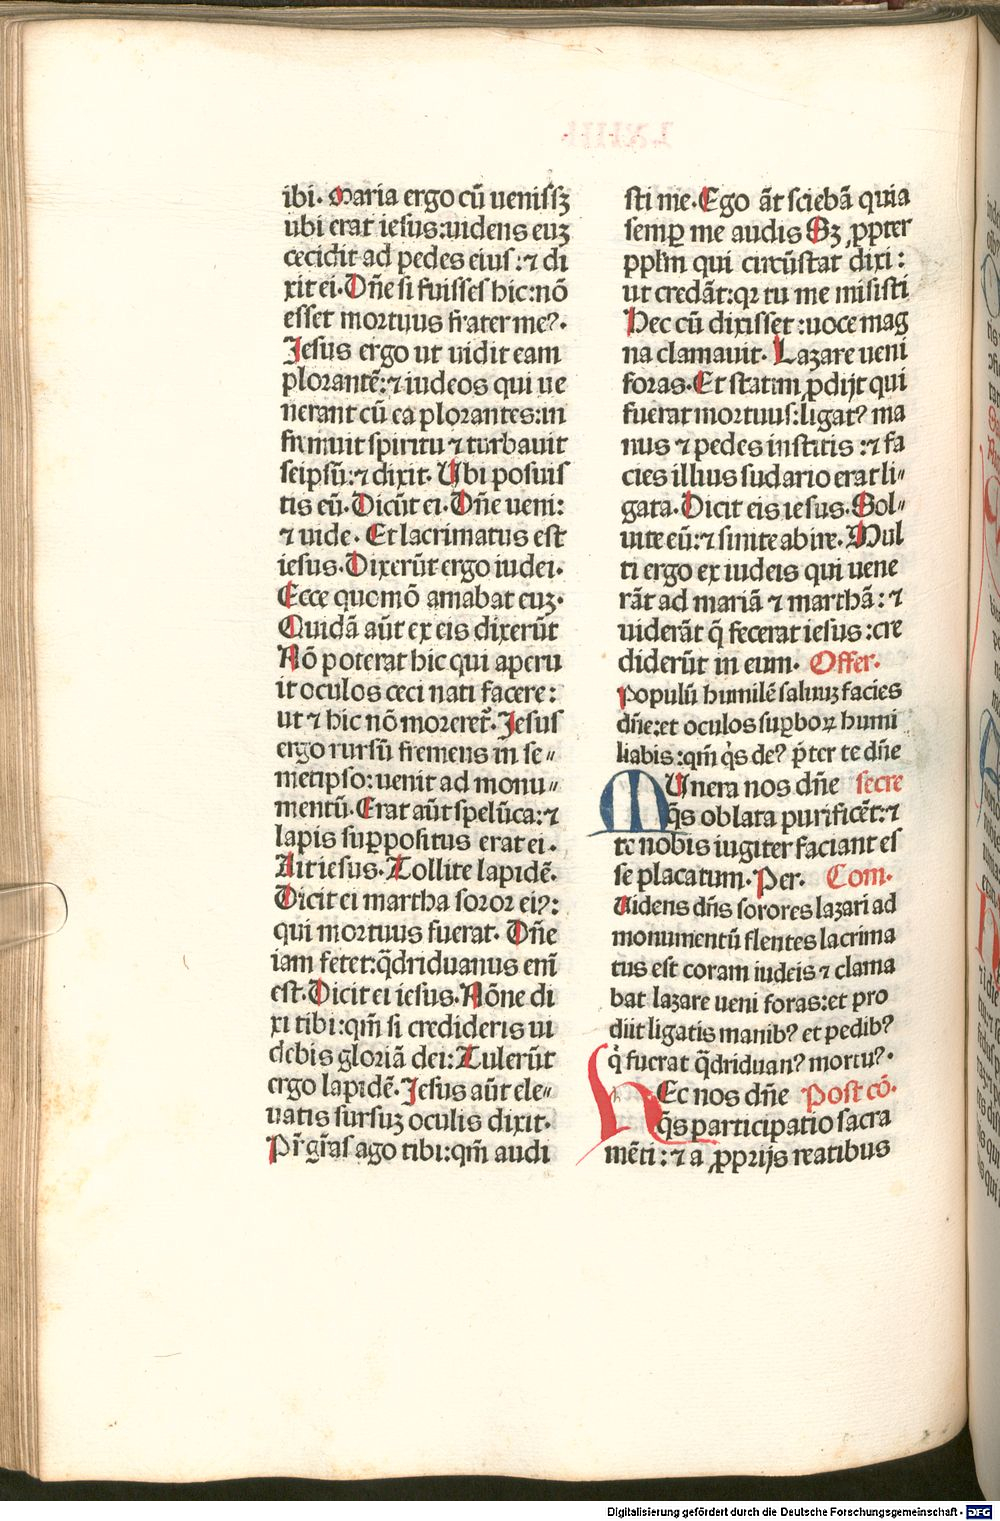 ibi. Maria ergo cū uenissꝫ
ubi erat iesus:uidens euꝫ
cecidit ad pedes eius:⁊ di
xit ei.Dn̄e si fuisses hic:nō
esset mortuus frater meꝰ.
Jesus ergo ut uidit eam
plorantē:⁊ iudeos qui ue
nerant cū ea plorantes:in
fremuit spiritu ⁊ turbauit
seipsū:⁊ dixit. Ubi posuis
tis eū.Dicūt ei.Dn̄e ueni:
⁊ uide. Et lacrimatus est
iesus.Dixerūt ergo iudei.
Ecce quomō amabat euꝫ.
Quidā aūt ex eis dixerūt
Nō poterat hic qui aperu
it oculos ceci nati facere:
ut ⁊ hic nō morereť. Jesus
ergo rursū fremens in se⸗
metipso:uenit ad monu⸗
mentū.Erat aūt spelūca:⁊
lapis suꝑpositus erat ei.
Ait iesus.Tollite lapidē.
Dicit ei martha soror eiꝰ:
qui mortuus fuerat. Dn̄e
iam fetet:q̄driduanus eni̅
est.Dicit ei iesus.Nōne di
xi tibi:qm̄ si credideris ui
debis gloriā dei:Tulerūt
ergo lapidē.Jesus aūt ele⸗
uatis sursuꝫ oculis dixit.
Pr̄ gr̄as ago tibi:qm̄ audi
sti me.Ego āt sciebā quia
semꝑ me audis Sꝫ ꝓpter
ppl̄m qui circūstat dixi:
ut credāt:qꝛ tu me misisti
Hec cū dixisset:uoce mag
na clamauit. Lazare ueni
foras.Et statim ꝓdijt qui
fuerat mortuus:ligatꝰ ma
nus ⁊ pedes institis:⁊ fa
cies illius sudario erat li⸗
gata.Dicit eis iesus.Sol⸗
uite eū:⁊ sinite abire.Mul
ti ergo ex iudeis qui uene
rāt ad mariā ⁊ marthā:⁊
uiderāt q̄ fecerat iesus:cre
diderūt in eum. Offer.
Populū humilē saluuꝫ facies
dn̄e:et oculos suꝑboꝝ humi
liabis:qm̄ qͥs deꝰ p̄ter te dn̄e
MUnera nos dn̄e secre
q̄s oblata purificēt:⁊
te nobis iugiter faciant es
se placatum.Per. Com.
Uidens dn̄s sorores lazari ad
monumentū flentes lacrima
tus est coram iudeis ⁊ clama
bat lazare ueni foras:et pro
diit ligatis manibꝰ et pedibꝰ
qͥ fuerat q̄driduanꝰ mortuꝰ.
HEc nos dn̄e Post cō.
q̄s participatio sacra
mēti:⁊ a ꝓprijs reatibus
Digitalisierung gefördert durch die Deutsche Forschungsgemeinschaft - DFG